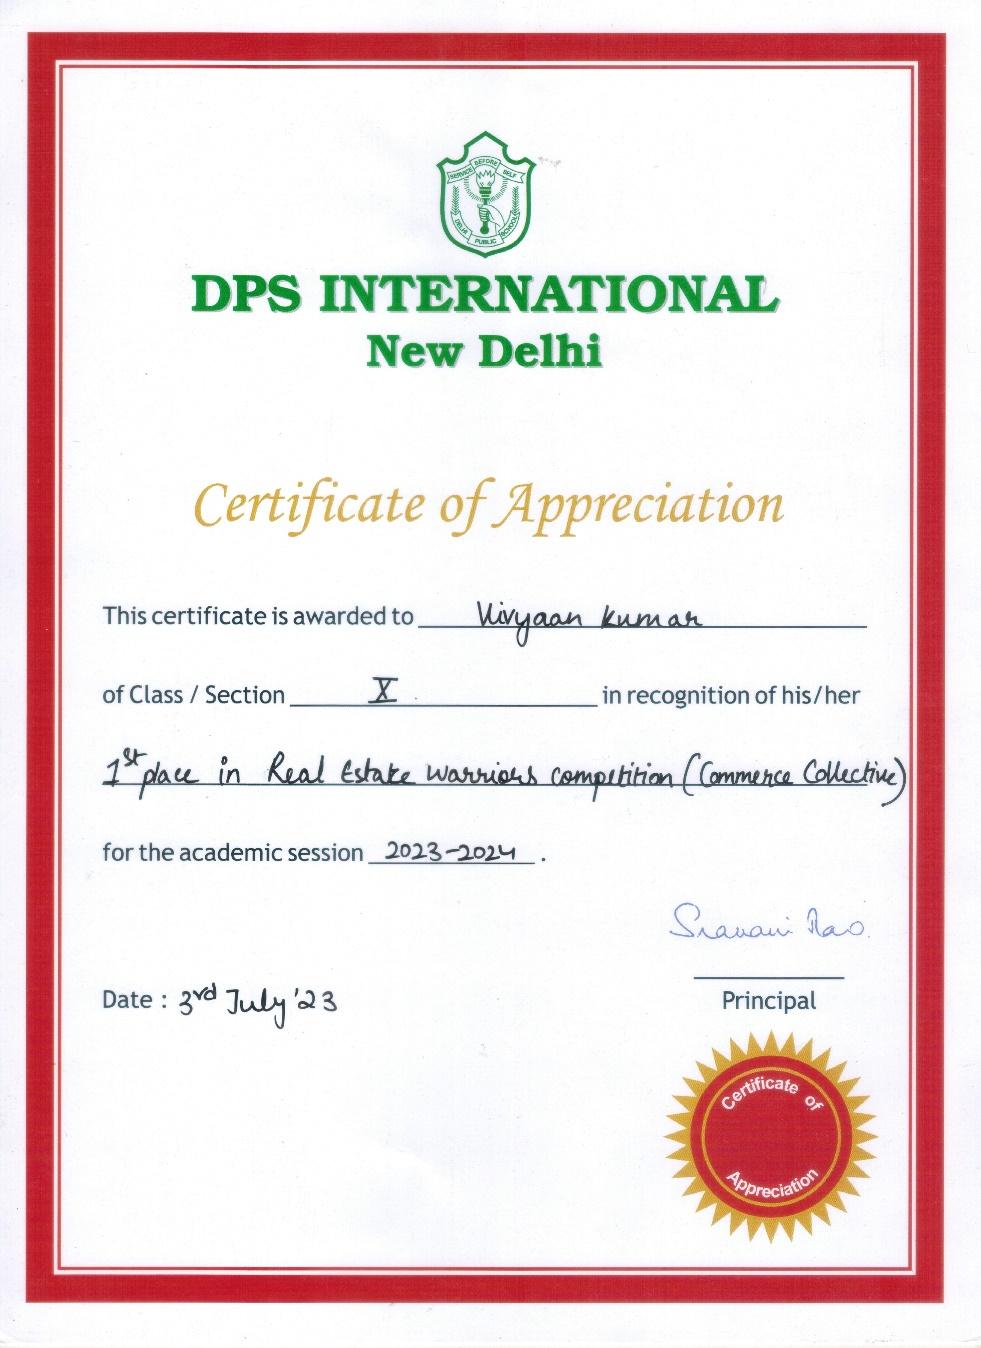 SERVICE BEFORE SELF
DELHI PUBLIC SCHOOL
DPS INTERNATIONAL
New Delhi
Certificate of Appreciation
This certificate is awarded to Vivyaan Kumar
of Class / Section X in recognition of his/her
1st place in Real Estate Warriors competition (Commerce Collective)
for the academic session 2023-2024 .
Sravani Rao.
Date : 3rd July '23
Principal
Certificate of
Appreciation